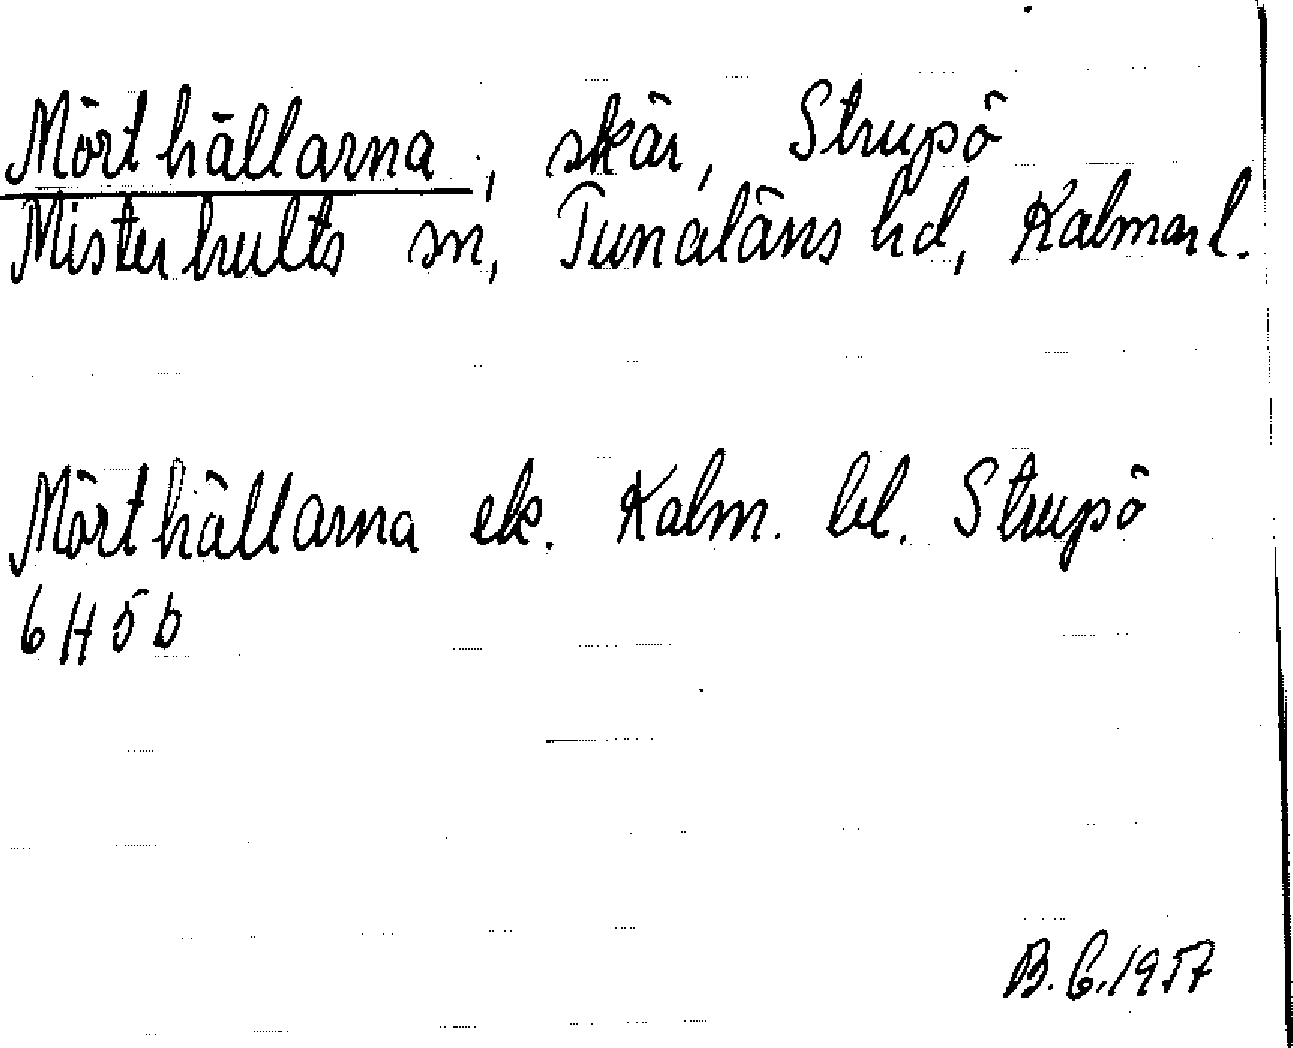 Mörthällarna, skär, Strupö
Misterhults sn, Tunaläns hd, Kalmar l.
Mörthällarna ek. Kalm. bl. Strupö
6H5b
B. G. 1957